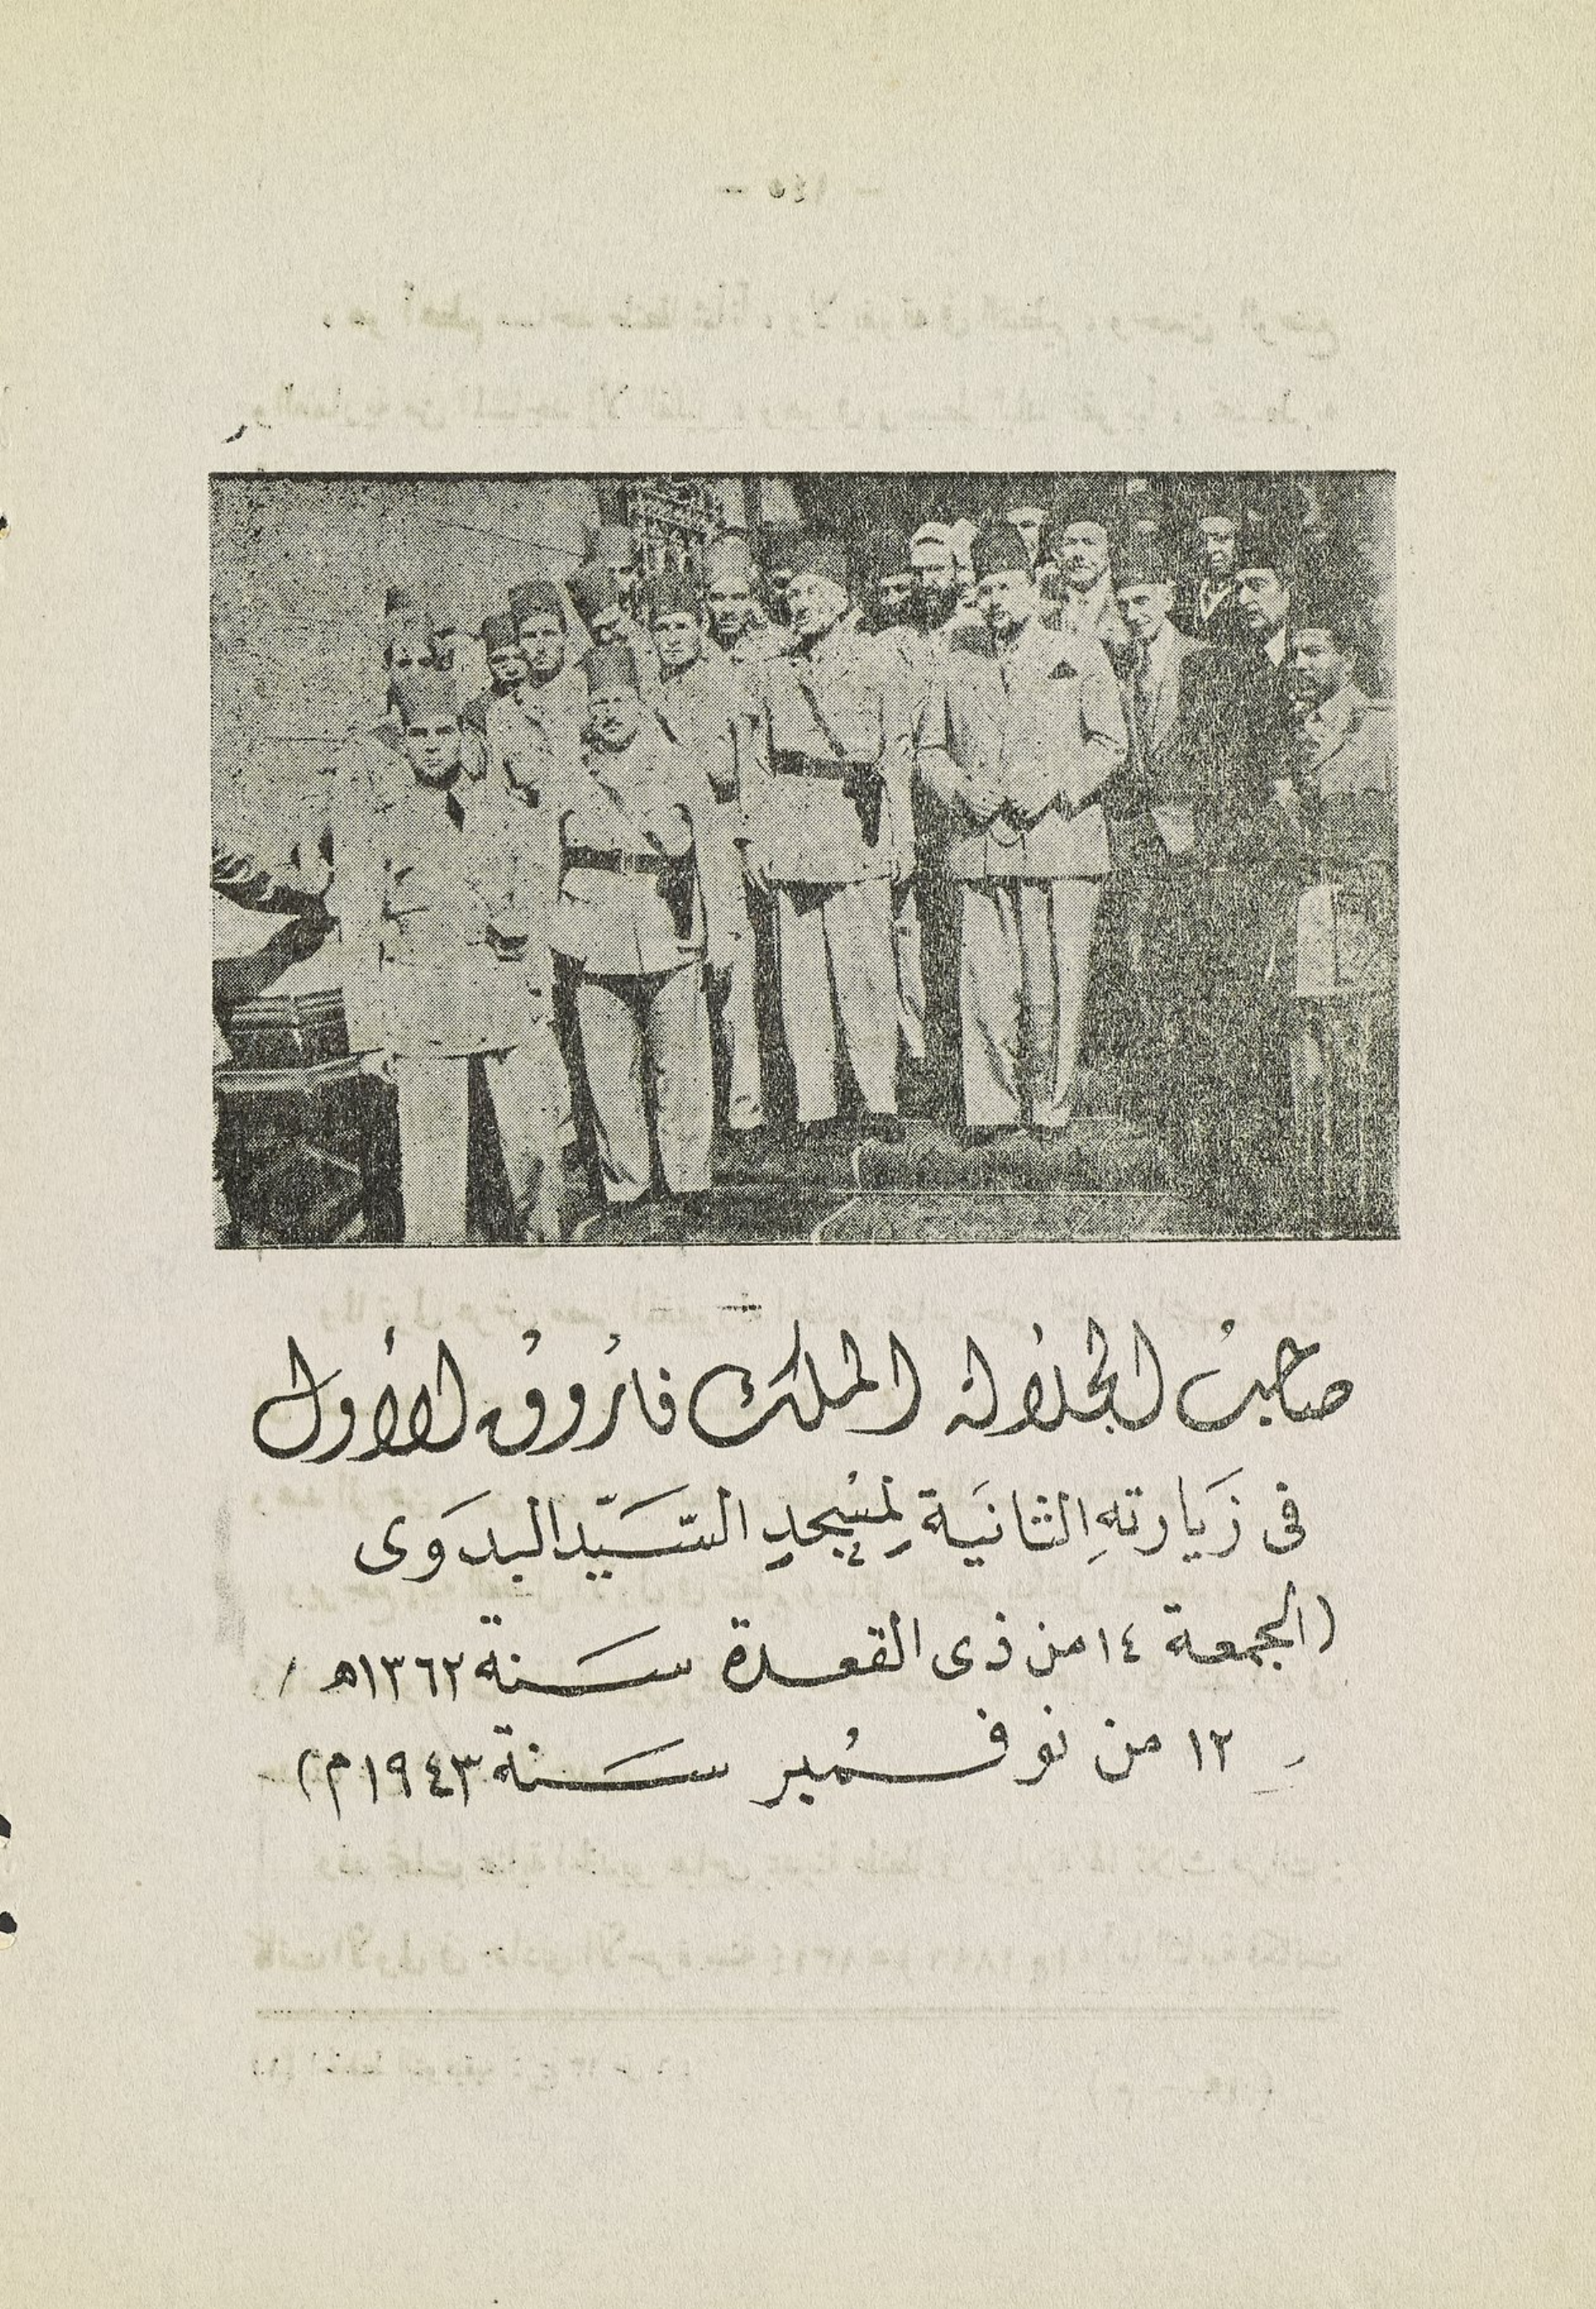 صاحبُ الجلالة الملك فاروق الأول
فى زيَارتهِ الثانيَة لمسْجِدِ السَّيّد البدَوى
(الجمعة ١٤ من ذى القعدة سَنة ١٣٦٢ه /
١٢ من نوفمْبر سَنة ١٩٤٣م)